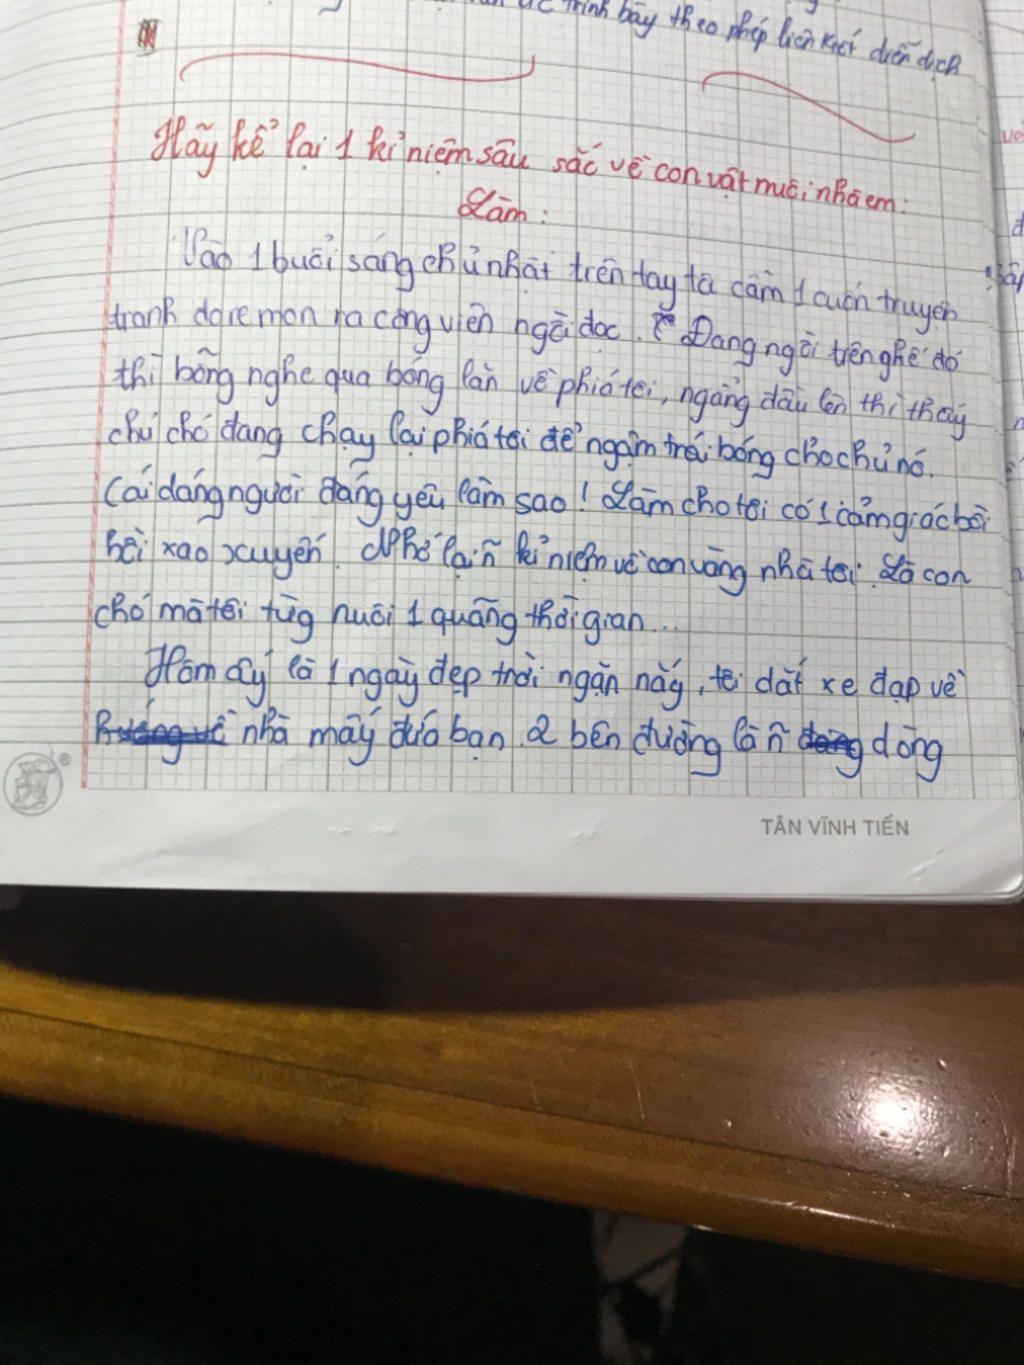 trình bày theo phép liên kết diễn dịch
Hãy kể lại 1 kỉ niệm sâu sắc về con vật nuôi nhà em:
Làm:
Vào 1 buổi sáng chủ nhật trên tay tôi cầm 1 cuốn truyện
tranh doremon ra công viên ngồi đọc. Đang ngồi trên ghế đó
thì bỗng nghe quả bóng lăn về phiá tôi, ngẩng đầu lên thì thấy
chú chó đang chạy lại phiá tôi để ngậm trái bóng cho chủ nó.
Cái dáng người đáng yêu làm sao! Làm cho tôi có 1 cảm giác bồi
hồi xao xuyến. Nhớ lại ñ kỉ niệm về con vàng nhà tôi. Là con
chó mà tôi từg nuôi 1 quãng thời gian...
Hôm ấy là 1 ngày đẹp trời ngặn nắy, tôi dắt xe đạp về
hướng về nhà mấy đứa bạn. 2 bên đường là ñ dòng
TÂN VĨNH TIẾN
®